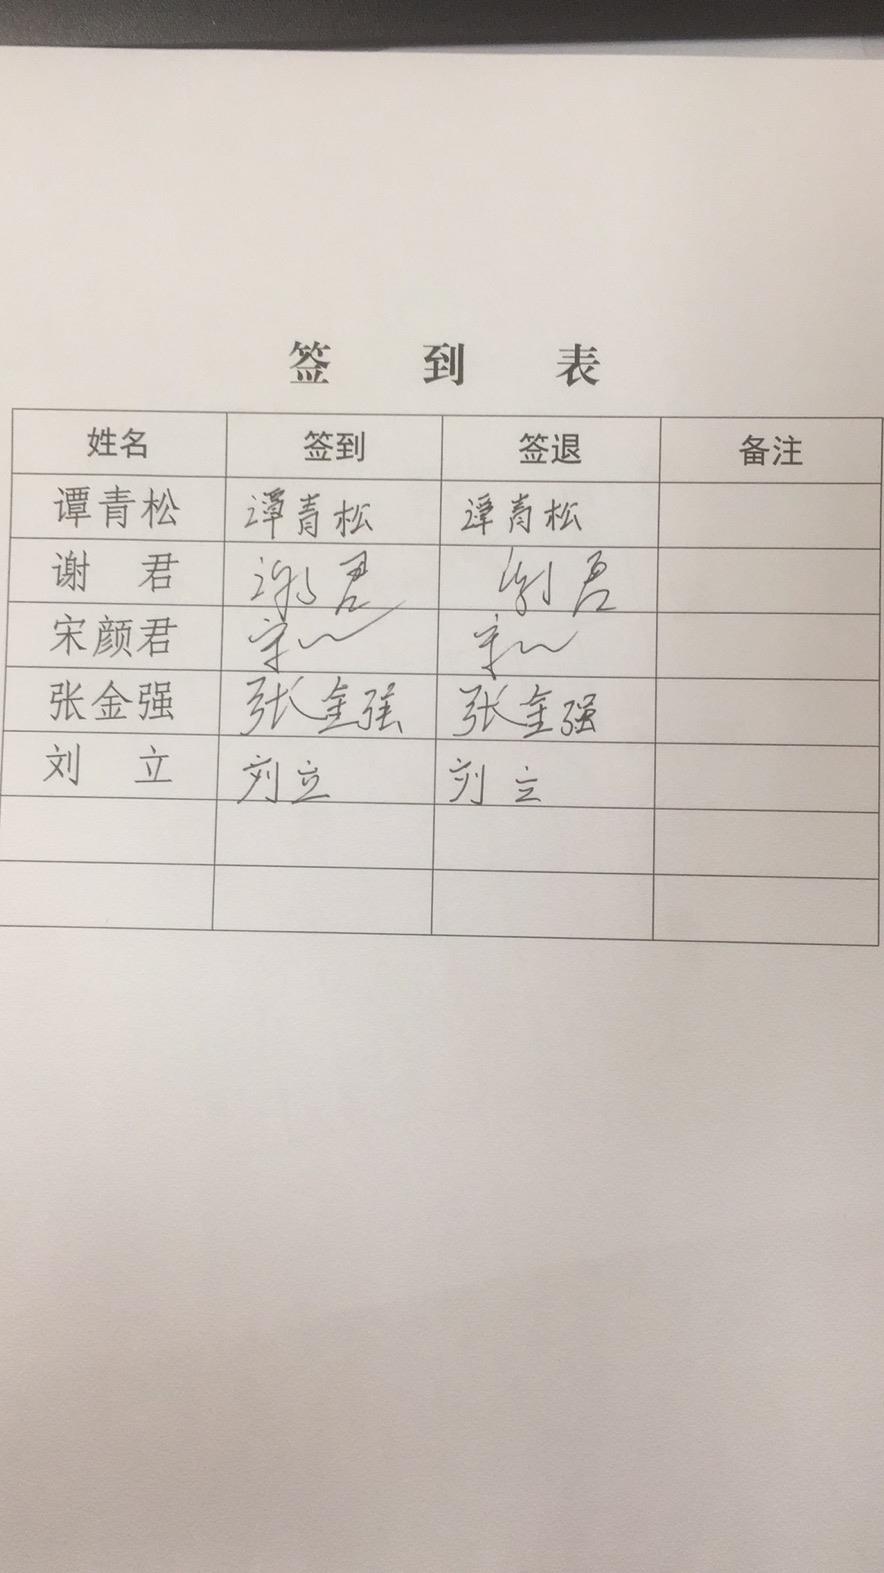 签 到 表
姓名 签到 签退 备注
谭青松 谭青松 谭青松
谢 君 谢君 谢君
宋颜君 宋 宋
张金强 张金强 张金强
刘 立 刘立 刘立